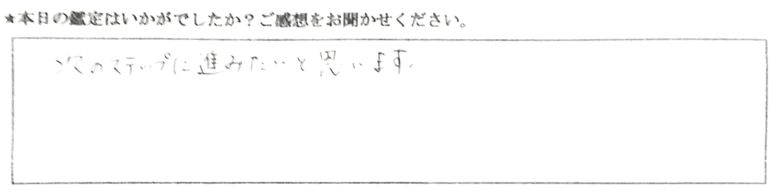 ★本日の鑑定はいかがでしたか？ご感想をお聞かせください。
次のステップに進みたいと思います。